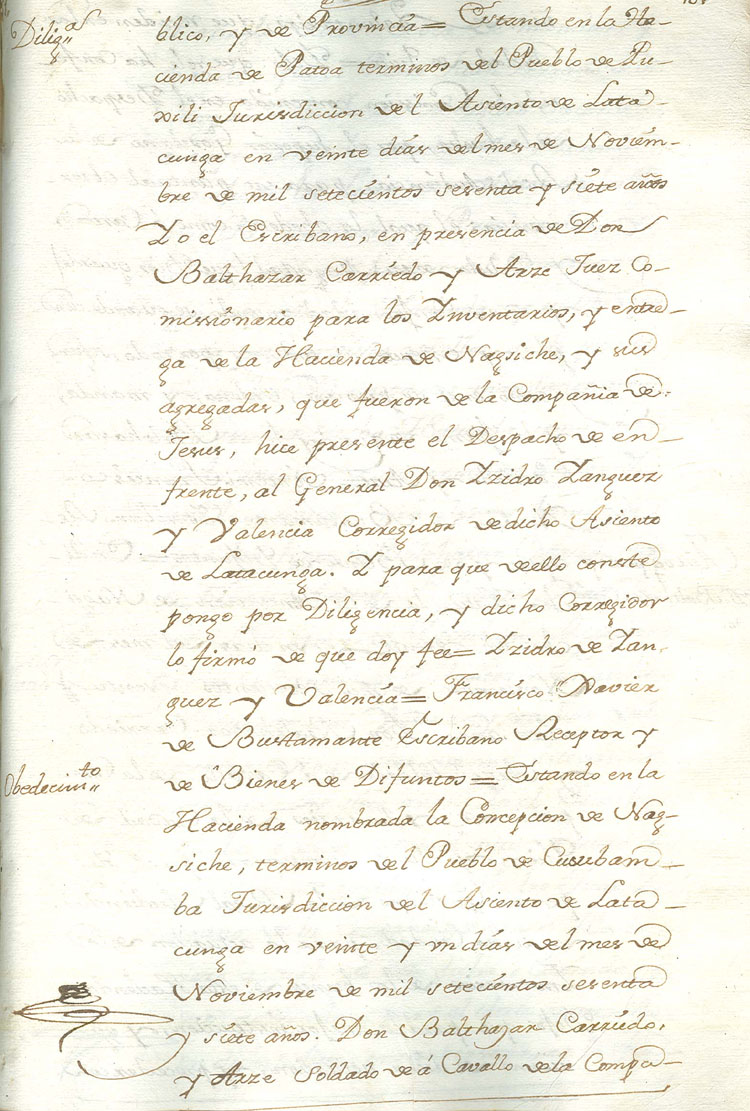 Dilig.as
blico, y de Provincia = Estando en la Ha-
cienda de Patoa terminos del Pueblo de Pu-
xili Jurisdiccion del Asiento de Lata-
cunga en veinte dias del mes de Noviem-
bre de mil setecientos sesenta y siete años
Yo el Escribano, en presencia de Don
Balthazar Carriedo y Arze Juez Co-
missionario para los Ynventarios, y entre-
ga de la Hacienda de Nagsiche, y sus
agregadas, que fueron de la Compañia de
Jesus, hice presente el Despacho de en-
frente, al General Don Yzidro Yanguez
y Valencia Corregidor de dicho Asiento
de Latacunga. Y para que dello conste
pongo por Diligencia, y dicho Corregidor
lo firmó de que doy fee = Yzidro de Yan-
guez y Valencia = Francisco Xavier
de Bustamante Escribano Receptor y
de Bienes de Difuntos = Estando en la
Obedecim.to
Hacienda nombrada la Concepcion de Nag-
siche, terminos del Pueblo de Cusubam-
ba Jurisdiccion del Asiento de Lata-
cunga en veinte y un dias del mes de
Noviembre de mil setecientos sesenta
y siete años. Don Balthazar Carriedo,
y Arze Soldado de á Cavallo de la Compa-